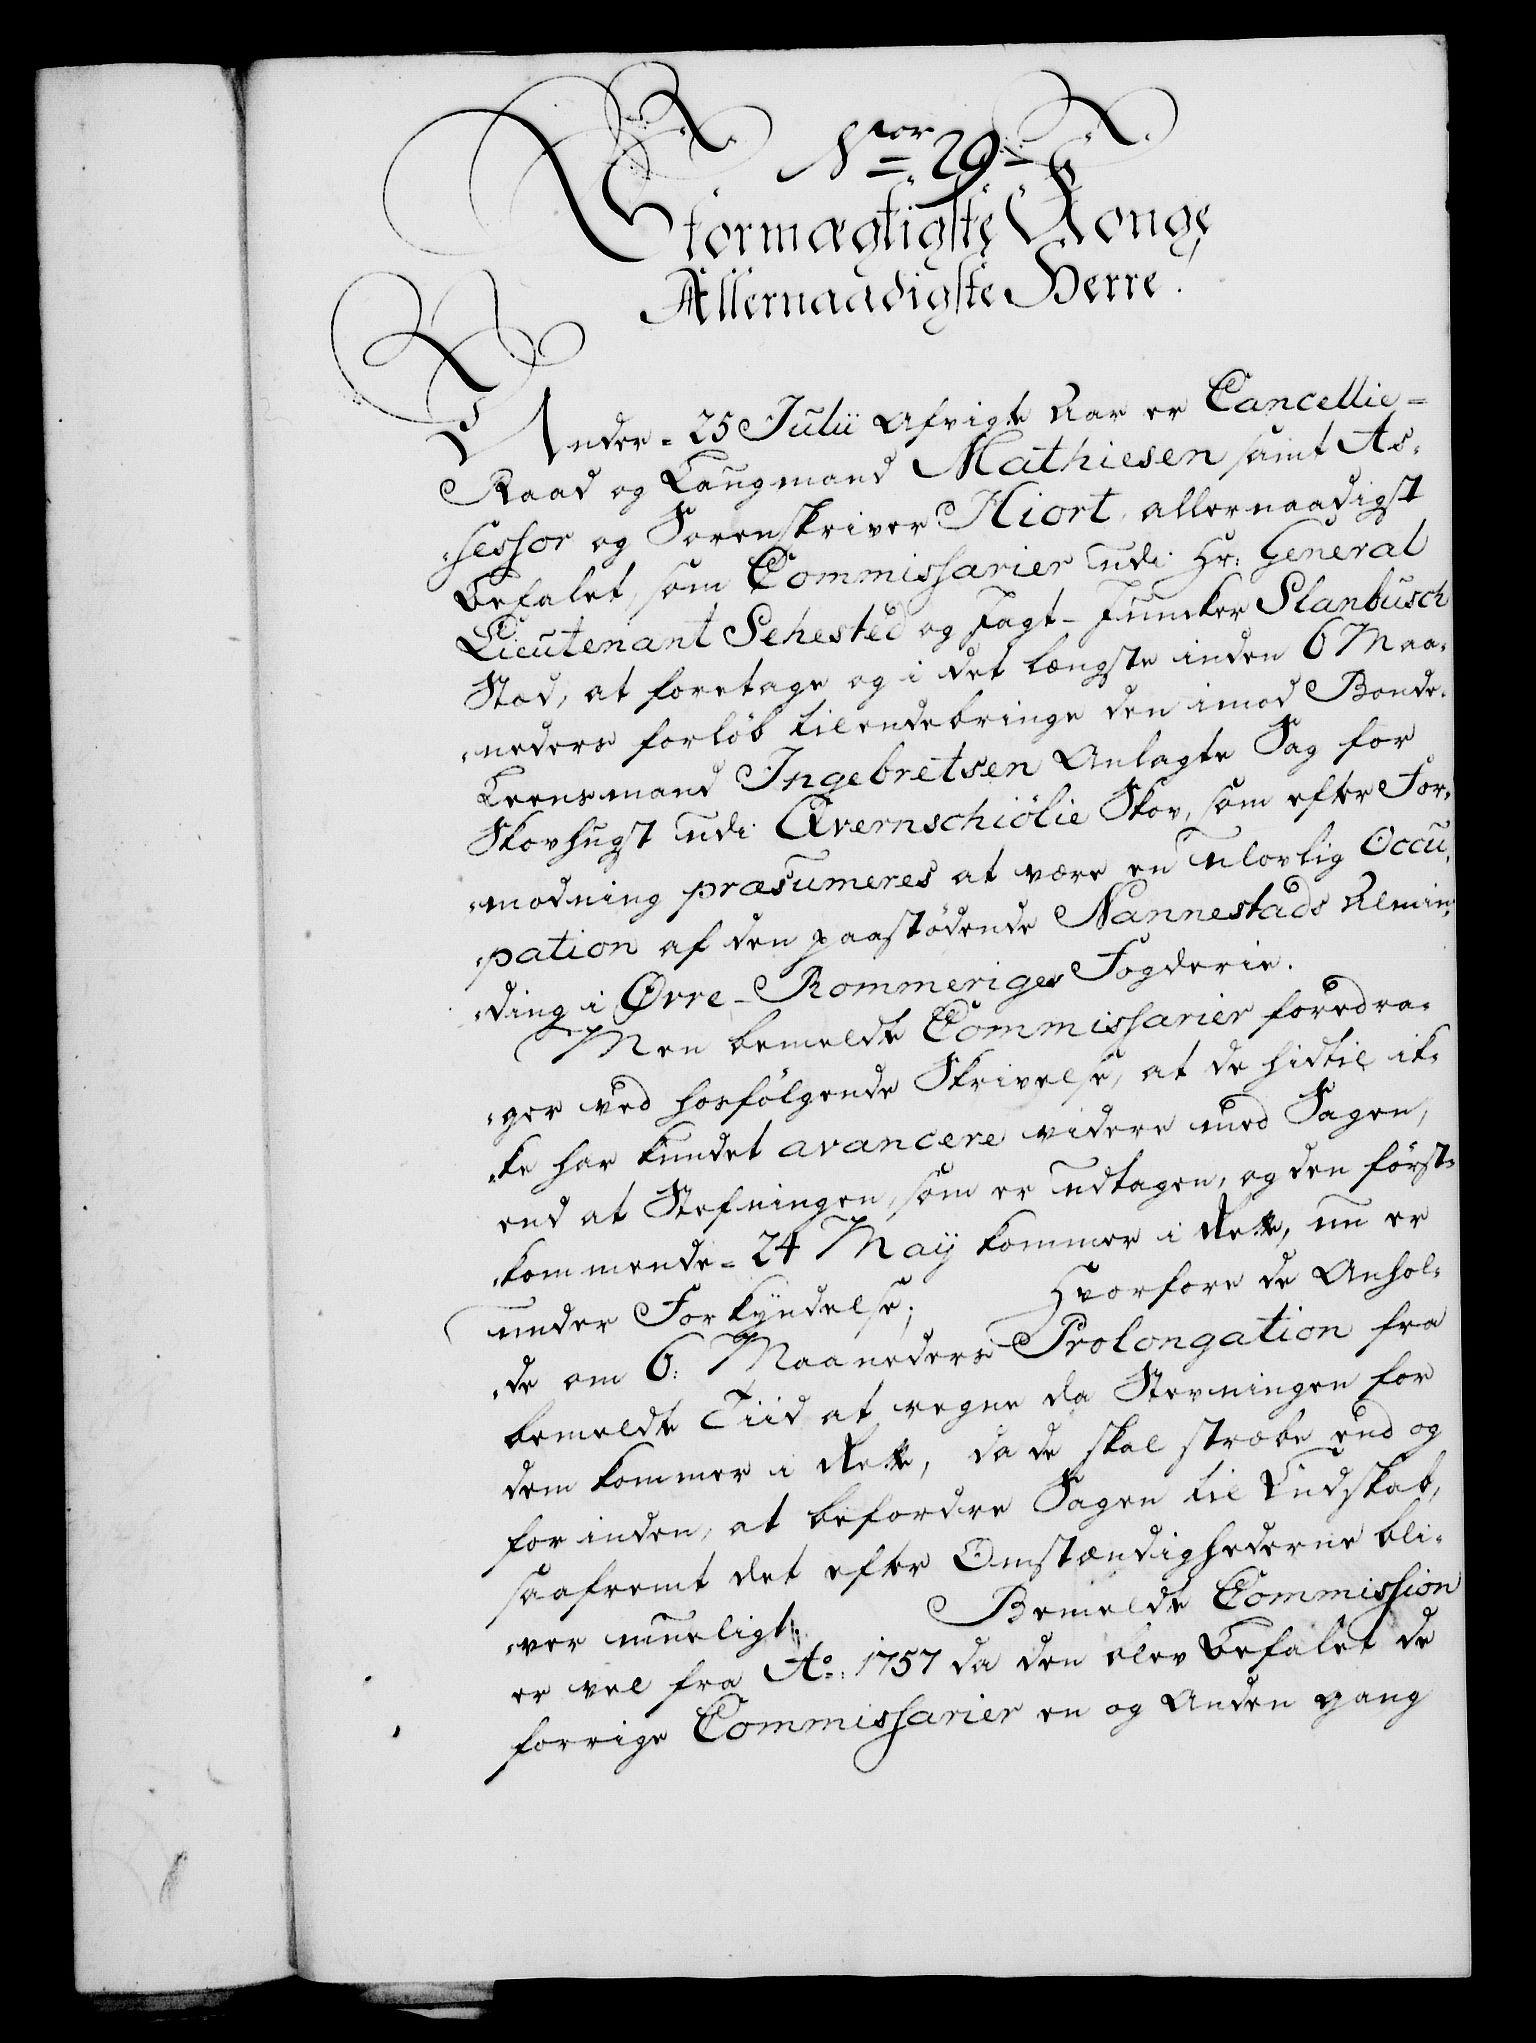 Nor 29
Stormægtigste Konge
Allernaadigste Herre.
Under = 25 Julii Afvigte Aar er Cancellie=
Raad og Laugmand Mathiesen samt As=
=sessor og Sorenskriver Hiort, allernaadigst
Befalet, som Commissarier udi Hr: General
Lieutenant Sehested og Jagt-Juncker Slanbusch
Stæd, at foretage og i det længste inden 6 Maa=
=neders forløb tilendebringe den imod Bonde=
Leensmand Ingebretsen Anlagte Sag for
Skovhugst udi Qvernschiölie Skov, som efter For=
=modning præsumeres at være en ulovlig Occu=
=pation af den paastødende Nannestads Almin=
=ding i Øvre-Rommeriges Fogderie.
Men bemeldte Commissarier foredra=
=ger ved hosfølgende Skrivelse, at de hidtil ik=
=ke har kundet avancere videre med Sagen,
end at Stefningen, som er udtagen, og den først=
=kommende = 24 Maÿ kommer i Rette, nu er
under Forkÿndelse; Hvorfore de Anhol=
=de om 6: Maaneders Prolongation fra
bemeldte Tiid at regne da Stevningen for
dem kommer i Rette, da de skal stræbe end og
for inden, at befordre Sagen til Endskab,
saafremt det efter Omstændighederne bli=
=ver mueligt. Bemeldte Commission
er vel fra Ao: 1757 da den blev Befalet de
forrige Commissarier en og Anden gang